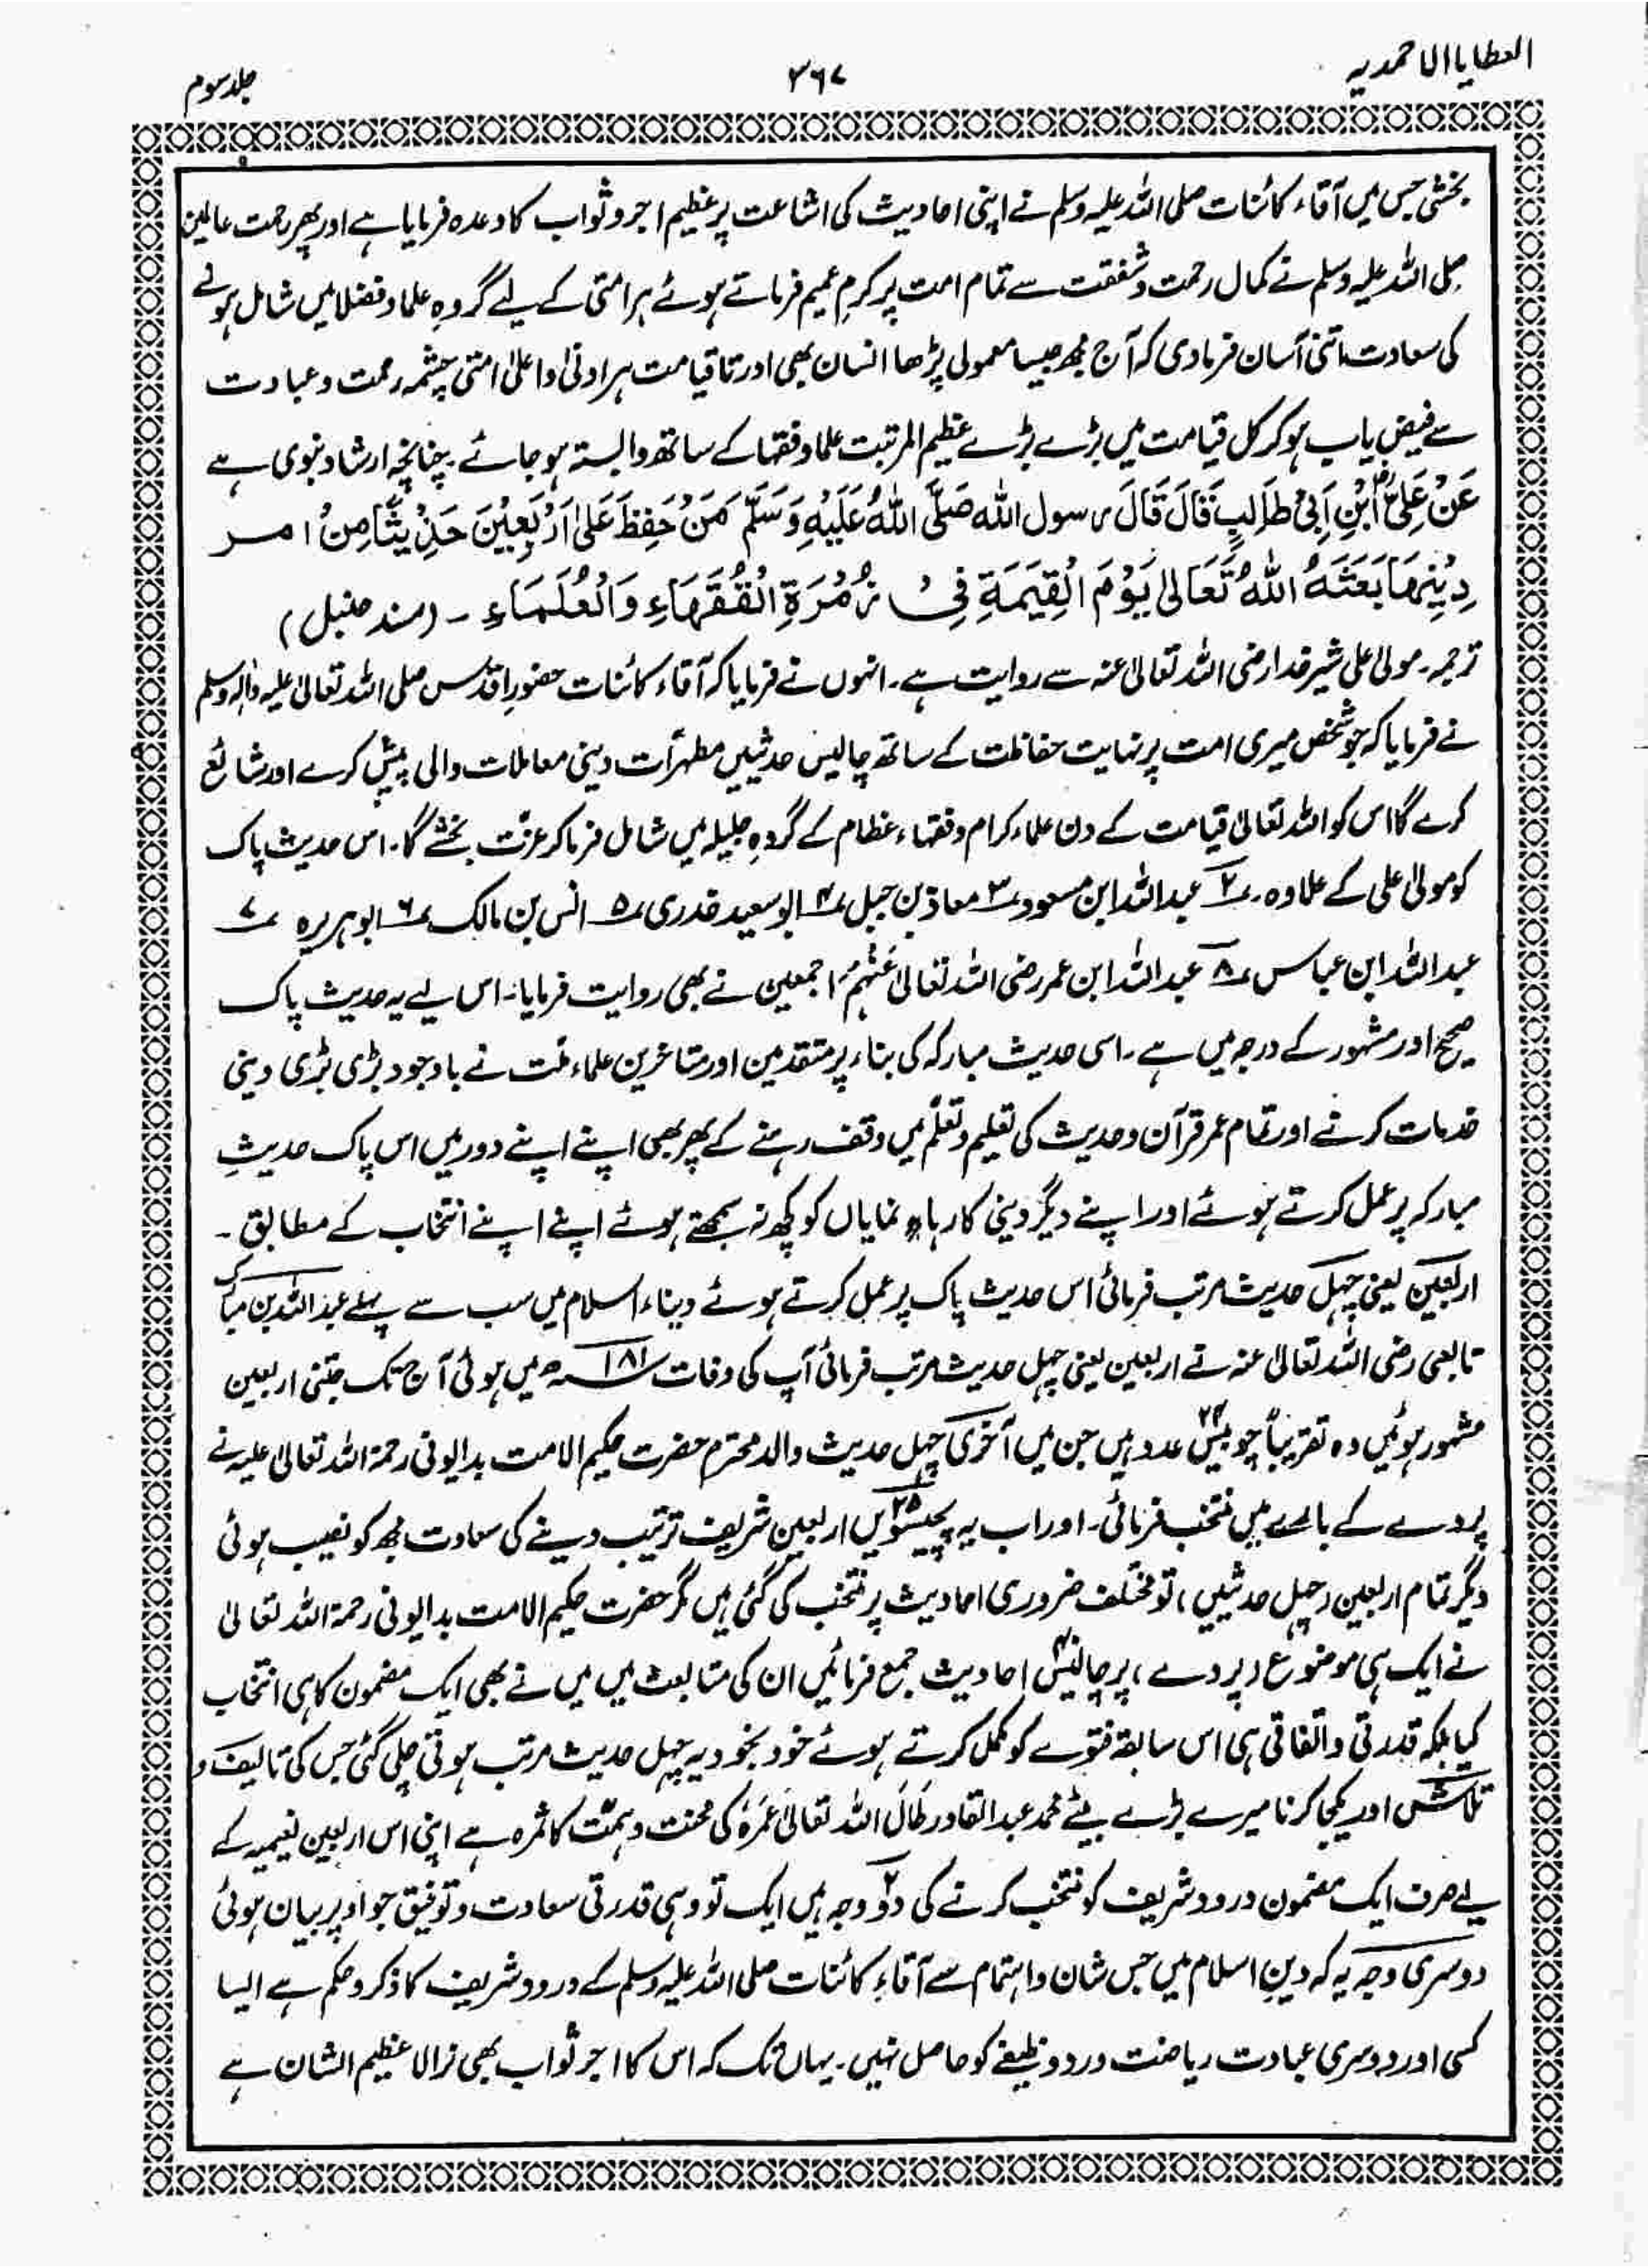 العطایا الاحمدیہ
۳۶۷
جلد سوم
بخشی جس میں آقاء کائنات صلی اللہ علیہ وسلم نے اپنی احادیث کی اشاعت پر عظیم اجر و ثواب کا وعدہ فرمایا ہے اور پھر رحمت عالمین
صلی اللہ علیہ وسلم نے کمال رحمت و شفقت سے تمام امت پر کرمِ عمیم فرماتے ہوئے ہر امتی کے لیے گروہِ علماء و فضلا میں شامل ہونے
کی سعادت اتنی آسان فرما دی کہ آج مجھ جیسا معمولی پڑھا انسان بھی اور تا قیامت ہر ادنیٰ و اعلیٰ امتی چشمہ رحمت و عبادت
سے فیض یاب ہو کر کل قیامت میں بڑے بڑے عظیم المرتبت علما و فقہا کے ساتھ وابستہ ہو جائے۔ چنانچہ ارشاد نبوی ہے
عَنْ عَلِیِّ ابْنِ اَبِیْ طَالِبٍ قَالَ قَالَ رسول اللہ صَلَّی اللہُ عَلَیْہِ وَسَلَّم مَنْ حَفِظَ عَلٰی اَرْبَعِیْنَ حَدِیْثًا مِنْ امر
دِیْنِھَا بَعَثَہُ اللہُ تَعَالٰی یَوْمَ الْقِیٰمَۃِ فِیْ زُمْرَۃِ الْفُقَھَاءِ وَالْعُلَمَاءِ ۔ (مسند حنبل)
ترجمہ۔ مولیٰ علی شیر خدا رضی اللہ تعالیٰ عنہ سے روایت ہے۔ انہوں نے فرمایا کہ آقاء کائنات حضورِ اقدس صلی اللہ تعالیٰ علیہ واٰلہ وسلم
نے فرمایا کہ جو شخص میری امت پر نہایت حفاظت کے ساتھ چالیس حدیثیں مطہرات دینی معاملات والی پیش کرے اور شائع
کرے گا اس کو اللہ تعالیٰ قیامت کے دن علماء کرام و فقہاء عظام کے گروہِ جلیلہ میں شامل فرما کر عزت بخشے گا۔ اس حدیث پاک
کو مولیٰ علی کے علاوہ۔ ۲؎ عبداللہ ابن مسعود ۳؎ معاذ بن جبل ۴؎ ابو سعید خدری ۵؎ انس بن مالک ۶؎ ابو ہریرہ ۷؎
عبداللہ ابن عباس ۸؎ عبداللہ ابن عمر رضی اللہ تعالیٰ عَنْہُمْ اجمعین نے بھی روایت فرمایا۔ اس لیے یہ حدیث پاک
صحیح اور مشہور کے درجہ میں ہے۔ اسی حدیث مبارکہ کی بناء پر متقدمین اور متاخرین علماء ملت نے باوجود بڑی بڑی دینی
خدمات کرنے اور تمام عمر قرآن و حدیث کی تعلیم و تعلّم میں وقف رہنے کے پھر بھی اپنے اپنے دور میں اس پاک حدیثِ
مبارکہ پر عمل کرتے ہوئے اور اپنے دیگر دینی کارہاء نمایاں کو کچھ نہ سمجھتے ہوئے اپنے اپنے انتخاب کے مطابق ۔
اربعین یعنی چہل حدیث مرتب فرمائی اس حدیث پاک پر عمل کرتے ہوئے دنیاء اسلام میں سب سے پہلے عبداللہ بن مبارک
تابعی رضی اللہ تعالیٰ عنہ نے اربعین یعنی چہل حدیث مرتب فرمائی آپ کی وفات ۱۸۱ ھ میں ہوئی آج تک جتنی اربعین
مشہور ہوئیں وہ تقریباً چوبیس ۲۴ عدد ہیں جن میں آخری چہل حدیث والد محترم حضرت حکیم الامت بدایونی رحمۃ اللہ تعالیٰ علیہ نے
پردے کے بارے میں منتخب فرمائی۔ اور اب یہ پچیسویں ۲۵ اربعین شریف ترتیب دینے کی سعادت مجھ کو نصیب ہوئی
دیگر تمام اربعین (چہل حدیثیں) تو مختلف ضروری احادیث پر منتخب کی گئی ہیں مگر حضرت حکیم الامت بدایونی رحمۃ اللہ تعالیٰ
نے ایک ہی موضوع (پردے) پر چالیس ۴۰ احادیث جمع فرمائیں ان کی متابعث میں میں نے بھی ایک مضمون کا ہی انتخاب
کیا بلکہ قدرتی و اتفاقی ہی اس سابقہ فتوے کو مکمل کرتے ہوئے خود بخود یہ چہل حدیث مرتب ہوتی چلی گئی جس کی تالیف و
تلاش اور یکجا کرنا میرے بڑے بیٹے محمد عبدالقادر طَالَ اللہ تعالیٰ عُمَرَہٗ کی محنت و ہمّت کا ثمرہ ہے اپنی اس اربعین نعیمیہ کے
لیے صرف ایک مضمون درود شریف کو منتخب کرنے کی دو ۲ وجہ ہیں ایک تو وہی قدرتی سعادت و توفیق جو اوپر بیان ہوئی
دوسری وجہ یہ کہ دینِ اسلام میں جس شان و اہتمام سے آقاءِ کائنات صلی اللہ علیہ وسلم کے درود شریف کا ذکر و حکم ہے ایسا
کسی اور دوسری عبادت ریاضت ورد و وظیفے کو حاصل نہیں۔ یہاں تک کہ اس کا اجر ثواب بھی نرالا عظیم الشان ہے